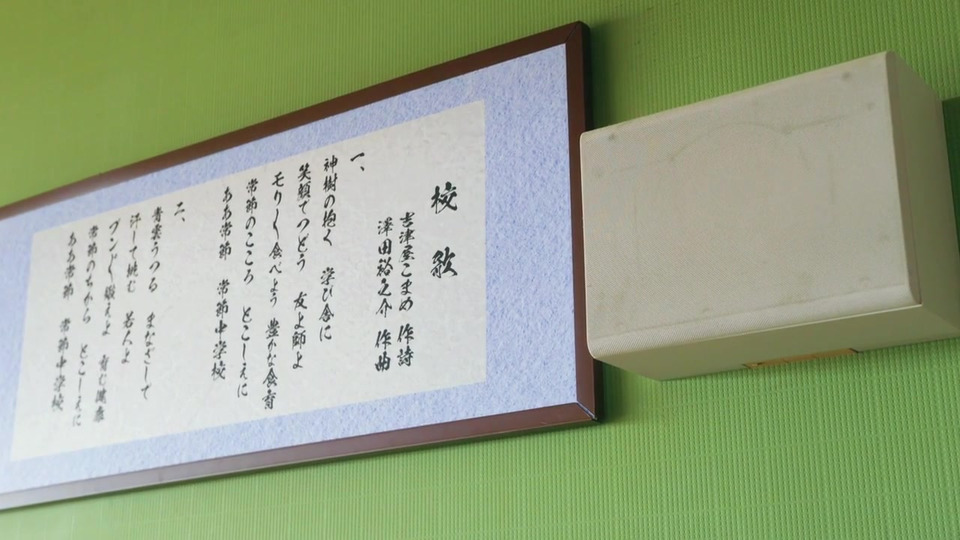 校歌
吉津屋こまめ 作詩
澤田裕之介 作曲
一、
神樹の抱く 学び舎に
笑顔でつどう 友よ師よ
モリ〱食べよう 豊かな食育
常節のこころ とこしえに
ああ常節 常節中学校
二、
青雲うつる まなざしで
汗して挑む 若人よ
ブンブン鍛えよ 育む健康
常節のちから とこしえに
ああ常節 常節中学校